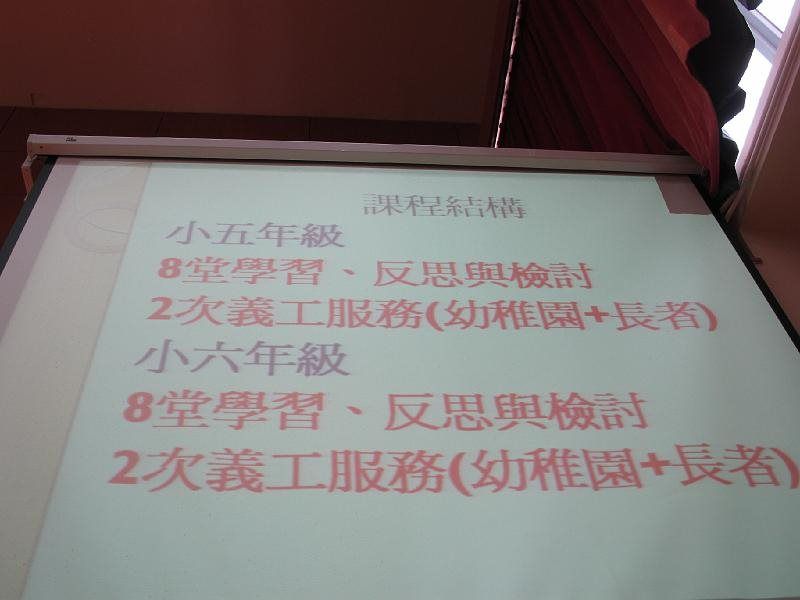 課程結構
小五年級
8堂學習、反思與檢討
2次義工服務(幼稚園+長者)
小六年級
8堂學習、反思與檢討
2次義工服務(幼稚園+長者)